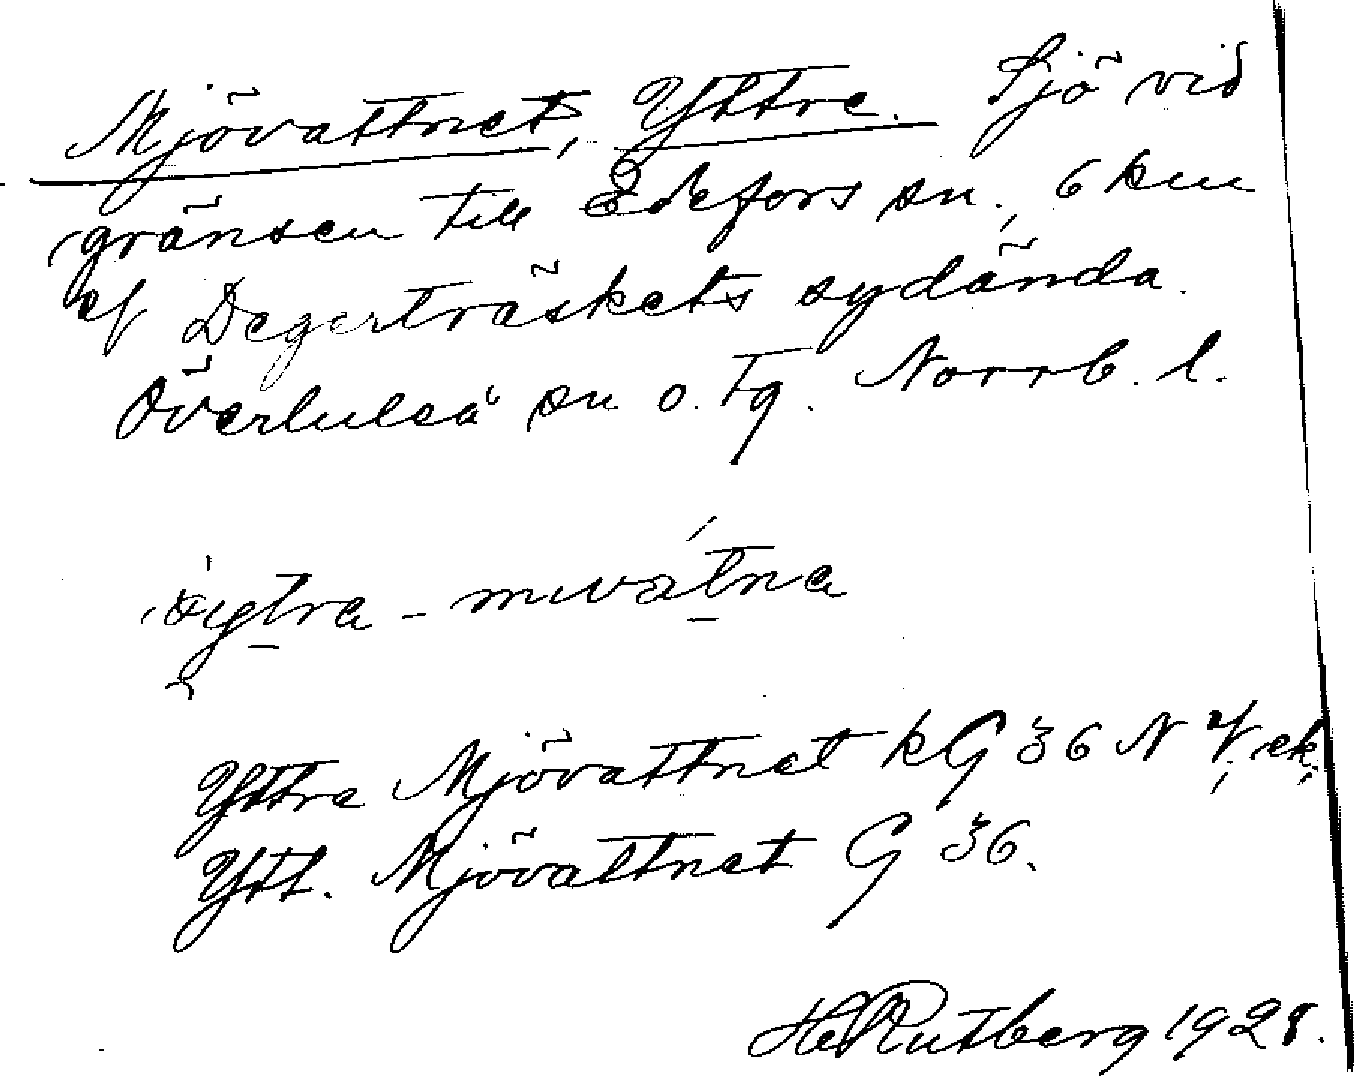 Mjövattnet, Yttre. Sjö vid
gränsen till Edefors sn., 6 km
af Degerträskets sydända.
Överluleå sn o. tg. Norrb. l.
Yttre Mjövattnet kG 36 N ek.
Ytt. Mjövattnet G 36.
H Rutberg 1928.